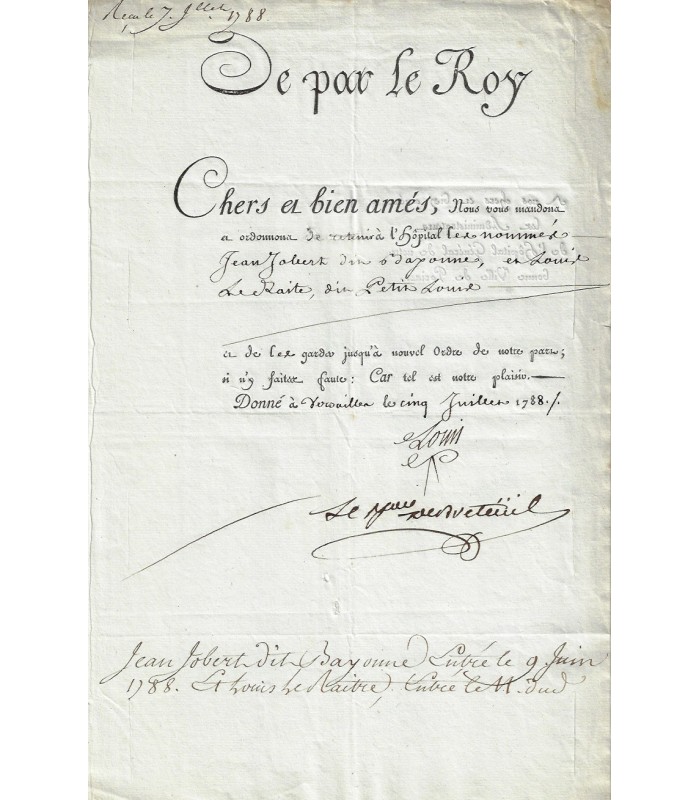 Reçu le 7. Jllet 1788
De par le Roy
Chers et bien amés, Nous vous mandons
et ordonnons de retenir à l'Hôpital les nommés
Jean Jobert dit Bayonne, et Louis
Le Raitre, dit Petit Louis
et de les garder jusqu'à nouvel Ordre de notre part;
si n'y faites faute: Car tel est notre plaisir.
Donné à Versailles le cinq Juillet 1788./.
Louis
Le Bon de Breteüil
Jean Jobert dit Bayonne Entrée le 9 Juin
1788. Et Louis Le Raitre, Entrée le 11. dud